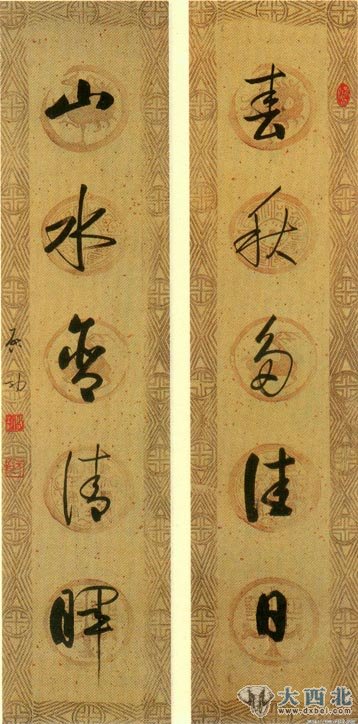 春秋多佳日
山水含清暉
启功
大西北
www.dxbei.com